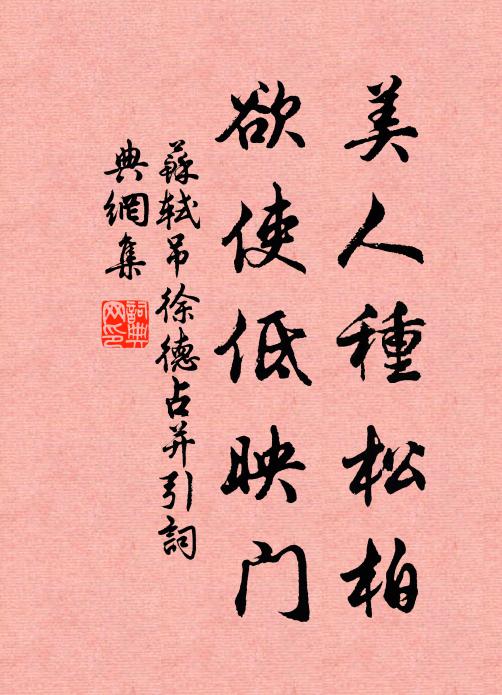 美人種松柏
欲使低映门
蘇軾吊徐德占并引詞
典網集
詞典
网印